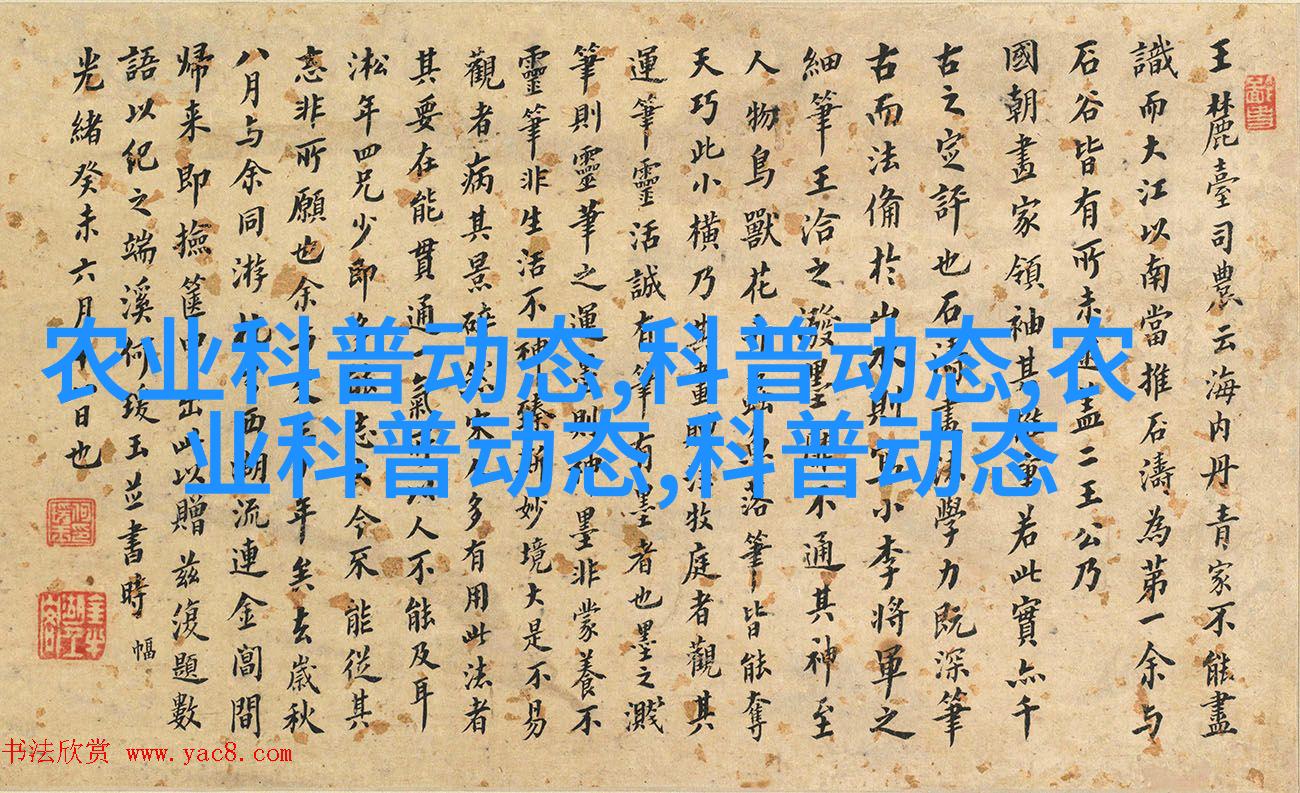 王麓臺司農云海内丹青家不能盡
識而大江以南當推石濤為第一余与
石谷皆有所未逮盖二王公乃
國朝畫家領袖其推重若此實亦千
古之定評也石濤畫法學力既深筆
古而法備於山水則宗小李將軍之
細筆王洽之潑墨靡不通其神至
人物鳥獸花卉蟲落筆皆能奪
天巧此小橫乃其畫牧庭者觀其
運筆靈活誠有筆有墨者也墨之濺
筆則靈筆之運墨則神墨非蒙養不
靈筆非生活不神臻斯妙境大是不易
觀者病其景碎然宋人多有用此法者
其要在能貫通一氣人不能及耳
淞年四兄少即志今不能從其
志非所願也余年矣去歲秋
八月与余同游西湖流連金閶間
歸来即撿篋中出此以贈兹復題數
語以紀之端溪何瑗玉並書時
光緒癸未六月日也
幅
农业科普动态,科普动态,农
业科普动态,科普动态
书法欣赏 www.yac8.com